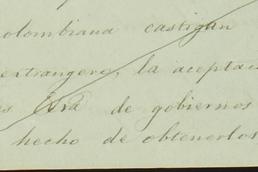 olombiana castigan
extrangero, la aceptac
es de gobiernos
hecho de obtenerlos